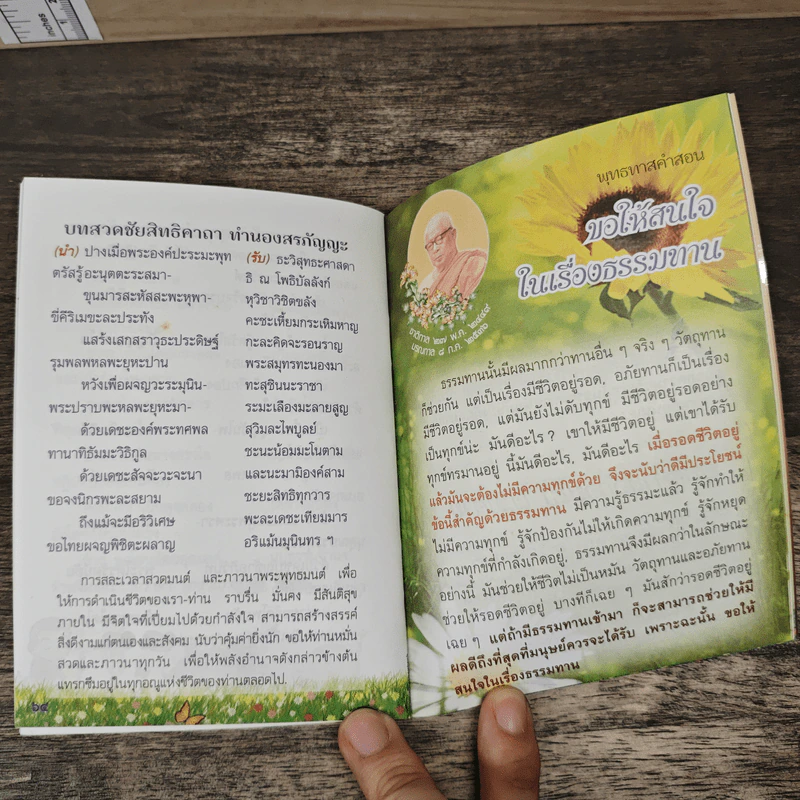 Inches
บทสวดชัยสิทธิคาถา ทำนองสรภัญญะ
(นำ) ปางเมื่อพระองค์ปะระมะพุท (รับ) ธะวิสุทธะศาสดา
ตรัสรู้อะนุตตะระสมา- ธิ ณ โพธิบัลลังก์
ขุนมารสะหัสสะพะหุพา- หุวิชาวิชิตขลัง
ขี่คีริเมขะละประทัง คะชะเหี้ยมกระเหิมหาญ
แสร้งเสกสราวุธะประดิษฐ์ กะละคิดจะรอนราญ
รุมพลพหลพะยุหะปาน พระสมุทรทะนองมา
หวังเพื่อผจญวะระมุนิน- ทะสุชินนะราชา
พระปราบพะหลพะยุหะมา- ระมะเลืองมะลายสูญ
ด้วยเดชะองค์พระทศพล สุวิมละไพบูลย์
ทานาทิธัมมะวิธิกูล ชะนะน้อมมะโนตาม
ด้วยเดชะสัจจะวะจะนา และนะมามิองค์สาม
ขอจงนิกรพะละสยาม ชะยะสิทธิทุกวาร
ถึงแม้จะมีอริวิเศษ พะละเดชะเทียมมาร
ขอไทยผจญพิชิตะผลาญ อริแม้นมุนินทร ฯ
การสละเวลาสวดมนต์ และภาวนาพระพุทธมนต์ เพื่อ
ให้การดำเนินชีวิตของเรา-ท่าน ราบรื่น มั่นคง มีสันติสุข
ภายใน มีจิตใจที่เปี่ยมไปด้วยกำลังใจ สามารถสร้างสรรค์
สิ่งดีงามแก่ตนเองและสังคม นับว่าคุ้มค่ายิ่งนัก ขอให้ท่านหมั่น
สวดและภาวนาทุกวัน เพื่อให้พลังอำนาจดังกล่าวข้างต้น
แทรกซึมอยู่ในทุกอณูแห่งชีวิตของท่านตลอดไป.
๖๔
พุทธทาสคำสอน
ขอให้สนใจ
ในเรื่องธรรมทาน
ชาติกาล ๒๗ พ.ค. ๒๔๔๙
มรณกาล ๘ ก.ค. ๒๕๓๖
ธรรมทานนั้นมีผลมากกว่าทานอื่น ๆ จริง ๆ วัตถุทาน
ก็ช่วยกัน แต่เป็นเรื่องมีชีวิตอยู่รอด, อภัยทานก็เป็นเรื่อง
มีชีวิตอยู่รอด, แต่มันยังไม่ดับทุกข์ มีชีวิตอยู่รอดอย่าง
เป็นทุกข์น่ะ มันดีอะไร? เขาให้มีชีวิตอยู่ แต่เขาได้รับ
ทุกข์ทรมานอยู่ นี้มันดีอะไร, มันดีอะไร เมื่อรอดชีวิตอยู่
แล้วมันจะต้องไม่มีความทุกข์ด้วย จึงจะนับว่าดีมีประโยชน์
ข้อนี้สำคัญด้วยธรรมทาน มีความรู้ธรรมะแล้ว รู้จักทำให้
ไม่มีความทุกข์ รู้จักป้องกันไม่ให้เกิดความทุกข์ รู้จักหยุด
ความทุกข์ที่กำลังเกิดอยู่, ธรรมทานจึงมีผลกว่าในลักษณะ
อย่างนี้ มันช่วยให้ชีวิตไม่เป็นหมัน วัตถุทานและอภัยทาน
ช่วยให้รอดชีวิตอยู่ บางทีก็เฉย ๆ มันสักว่ารอดชีวิตอยู่
เฉย ๆ แต่ถ้ามีธรรมทานเข้ามา ก็จะสามารถช่วยให้มี
ผลดีถึงที่สุดที่มนุษย์ควรจะได้รับ เพราะฉะนั้น ขอให้
สนใจในเรื่องธรรมทาน